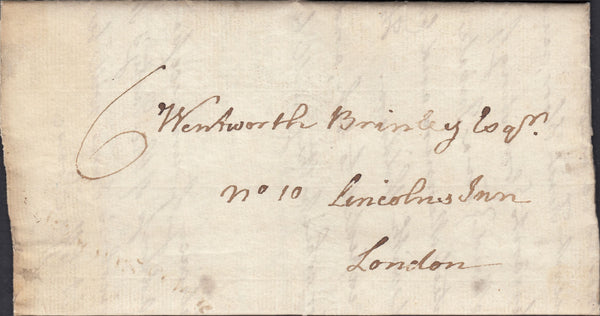 6
Wentworth Brinley Esqr.
No 10 Lincolns Inn
London